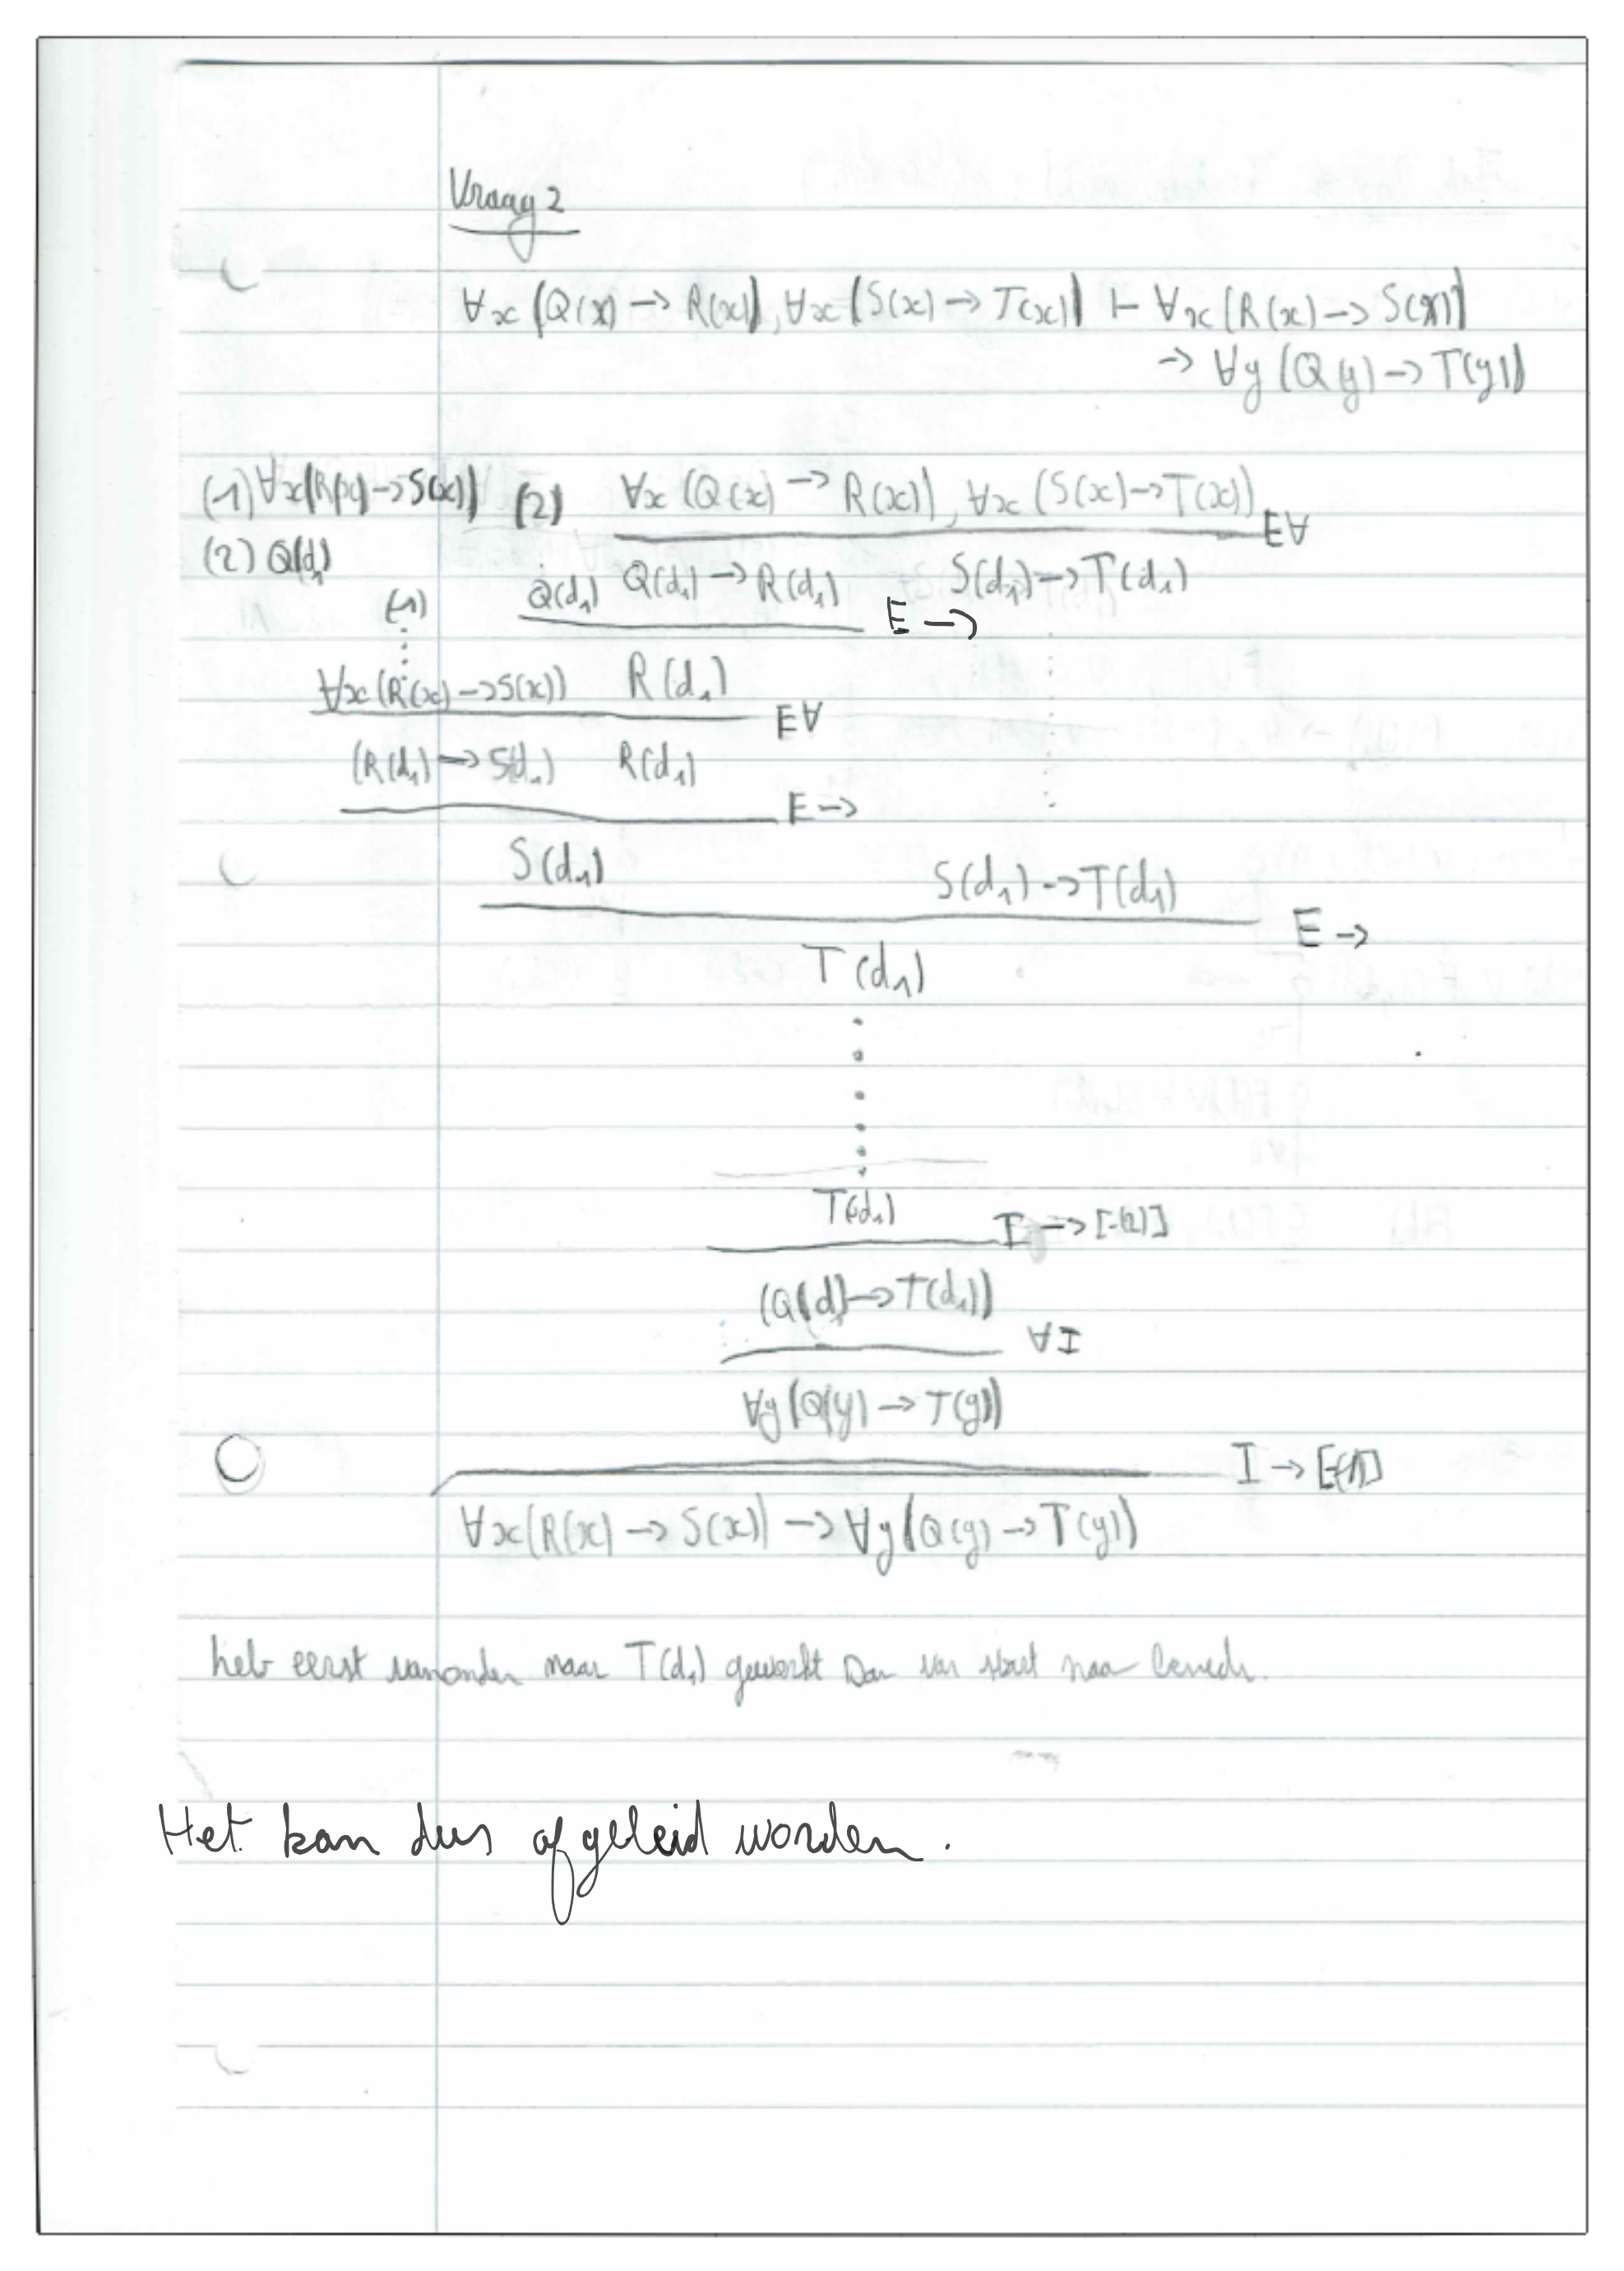 Vraag 2
∀x (Q(x) → R(x)), ∀x (S(x) → T(x)) ⊢ ∀x (R(x) → S(x))
→ ∀y (Q(y) → T(y))
(1) ∀x(R(x) → S(x)) (2) ∀x (Q(x) → R(x)), ∀x (S(x) → T(x)) E∀
(2) Q(d₁)
(1) Q(d₁) Q(d₁) → R(d₁) S(d₁) → T(d₁)
E →
∀x (R(x) → S(x)) R(d₁)
E∀
(R(d₁) → S(d₁) R(d₁)
E →
S(d₁) S(d₁) → T(d₁)
E →
T(d₁)
T(d₁)
I → [-(2)]
(Q(d₁) → T(d₁))
∀I
∀y (Q(y) → T(y))
I → [-(1)]
∀x (R(x) → S(x)) → ∀y (Q(y) → T(y))
heb eerst vanonder naar T(d₁) gewerkt Dan van start naar
Het kan dus afgeleid worden.